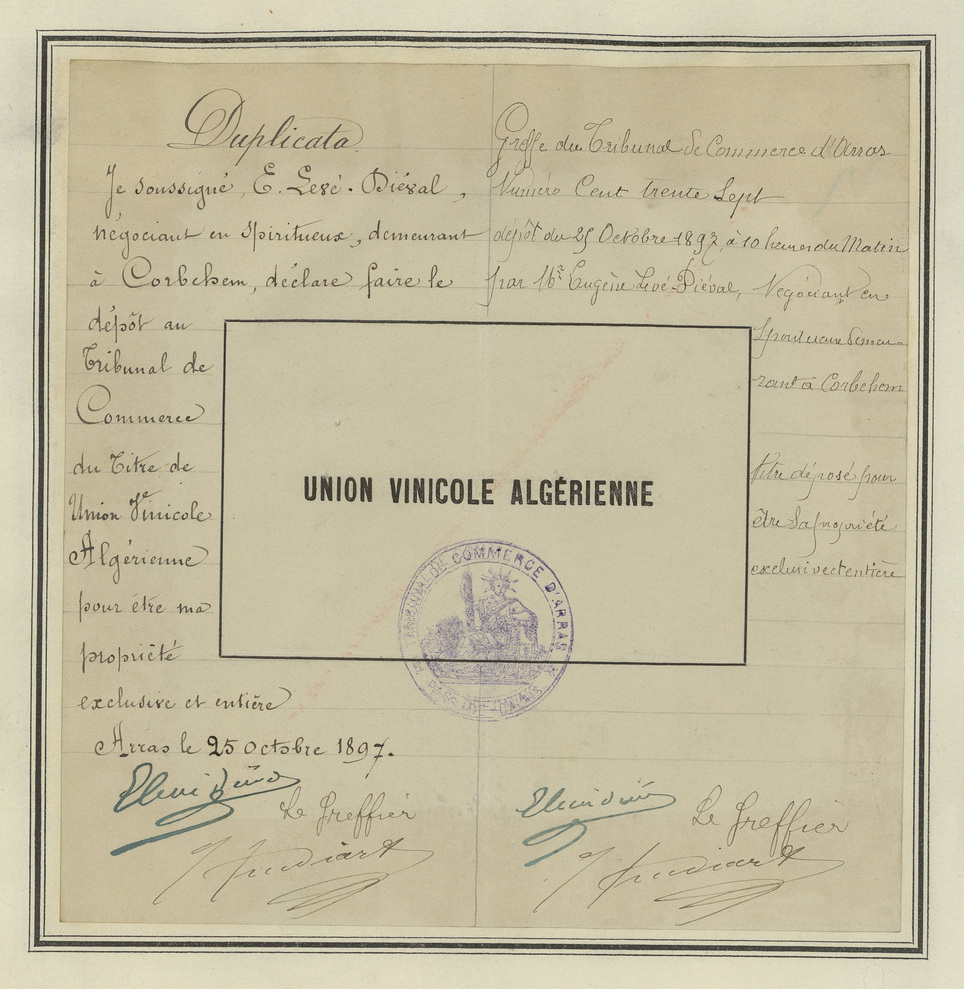 Duplicata
Je soussigné, E. Levé-Diéval,
négociant en spiritueux, demeurant
à Corbehem, déclare faire le
dépôt au
Tribunal de
Commerce
du Titre de
Union Vinicole
Algérienne
pour être ma
propriété
exclusive et entière
Arras le 25 Octobre 1897.
Le Greffier
Greffe du Tribunal de Commerce d'Arras
Numéro Cent trente Sept
dépôt du 25 Octobre 1897 à 10 heures du Matin
par Mr Eugène Levé-Diéval, Négociant en
Spiritueux demeu-
rant à Corbehem
Titre déposé pour
être sa propriété
exclusive et entière
Le Greffier
UNION VINICOLE ALGÉRIENNE
TRIBUNAL DE COMMERCE D'ARRAS
PAS-DE-CALAIS